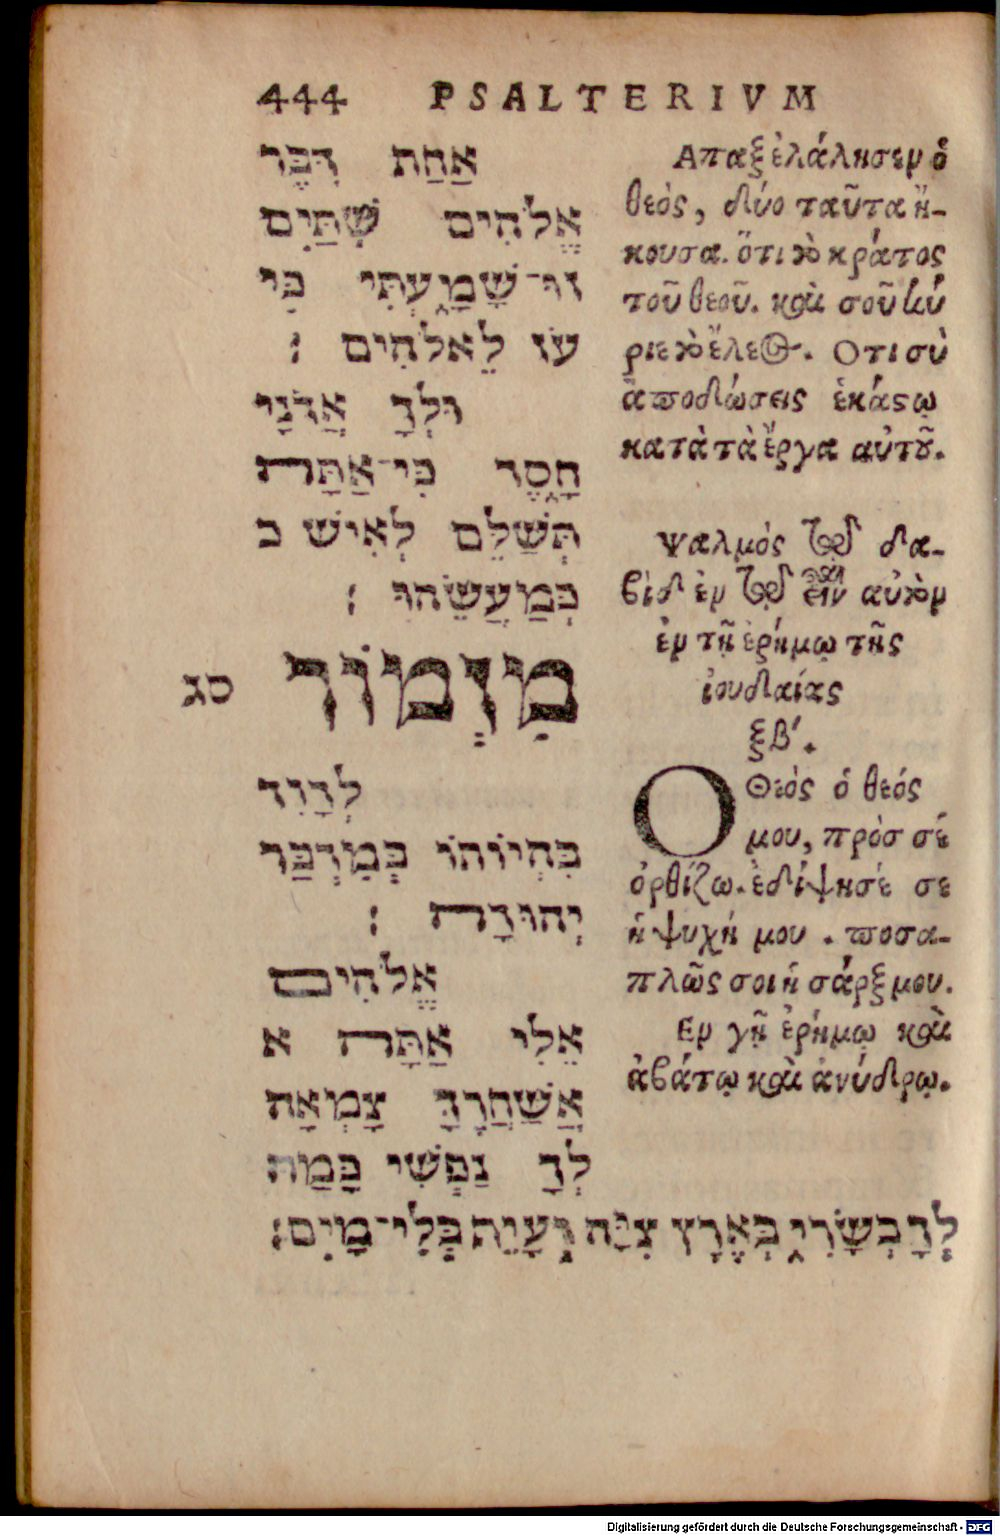 444 PSALTERIVM
אַחַת דִּבֶּר
אֱלֹהִים שְׁתַּיִם
זוּ־שָׁמָעְתִּי כִּי
עֹז לֵאלֹהִים :
וּלְךָ אֲדֹנָי
חָסֶד כִּי־אַתָּה
תְּשַׁלֵּם לְאִישׁ כ
כְּמַעֲשֵׂהוּ :
סג מִזְמוֹר
לְדָוִד
בִּהְיוֹתוֹ בְּמִדְבַּר
יְהוּדָה :
אֱלֹהִים
אֵלִי אַתָּה א
אֲשַׁחֲרֶךָּ צָמְאָה
לְךָ נַפְשִׁי כָּמַהּ
לְךָ בְשָׂרִי בְּאֶרֶץ צִיָּה וְעָיֵף בְּלִי־מָיִם:
Απαξ ἐλάλησεν ὁ
θεὸς, δύο ταῦτα ἤ-
κουσα. ὅτι τὸ κράτος
τοῦ θεοῦ. καὶ σοῦ κύ
ριε τὸ ἔλεος. Οτι σὺ
ἀποδώσεις ἑκάστῳ
κατὰ τὰ ἔργα αὐτοῦ.
Ψαλμὸς τῷ δα-
βὶδ ἐν τῷ εἶναι αὐτὸν
ἐν τῇ ἐρήμῳ τῆς
ἰουδαίας
ξβ΄.
Ο Θεὸς ὁ θεός
μου, πρὸσ σέ
ὀρθίζω. ἐδίψησέ σε
ἡ ψυχή μου. ποσα-
πλῶς σοι ἡ σάρξ μου.
Εν γῇ ἐρήμῳ καὶ
ἀβάτῳ καὶ ἀνύδρῳ.
Digitalisierung gefördert durch die Deutsche Forschungsgemeinschaft - DFG